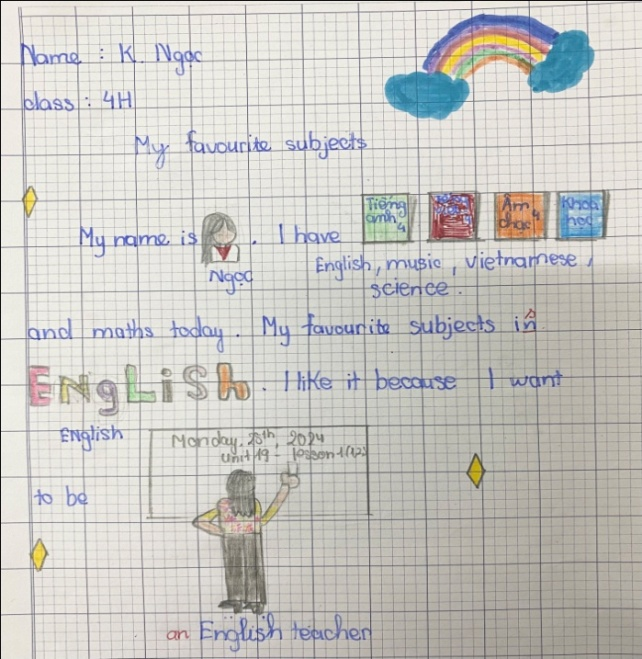 Name : K. Ngọc
class : 4H
My favourite subjects
Tiếng anh 4
Âm nhạc 4
Khoa học
My name is . I have
Ngọc
English, music, vietnamese,
science.
and maths today. My favourite subjects in
ENgLiSh. I like it because I want
English
Monday, 25th, 2024
Unit 19 - lesson 1(1,2)
to be
an English teacher